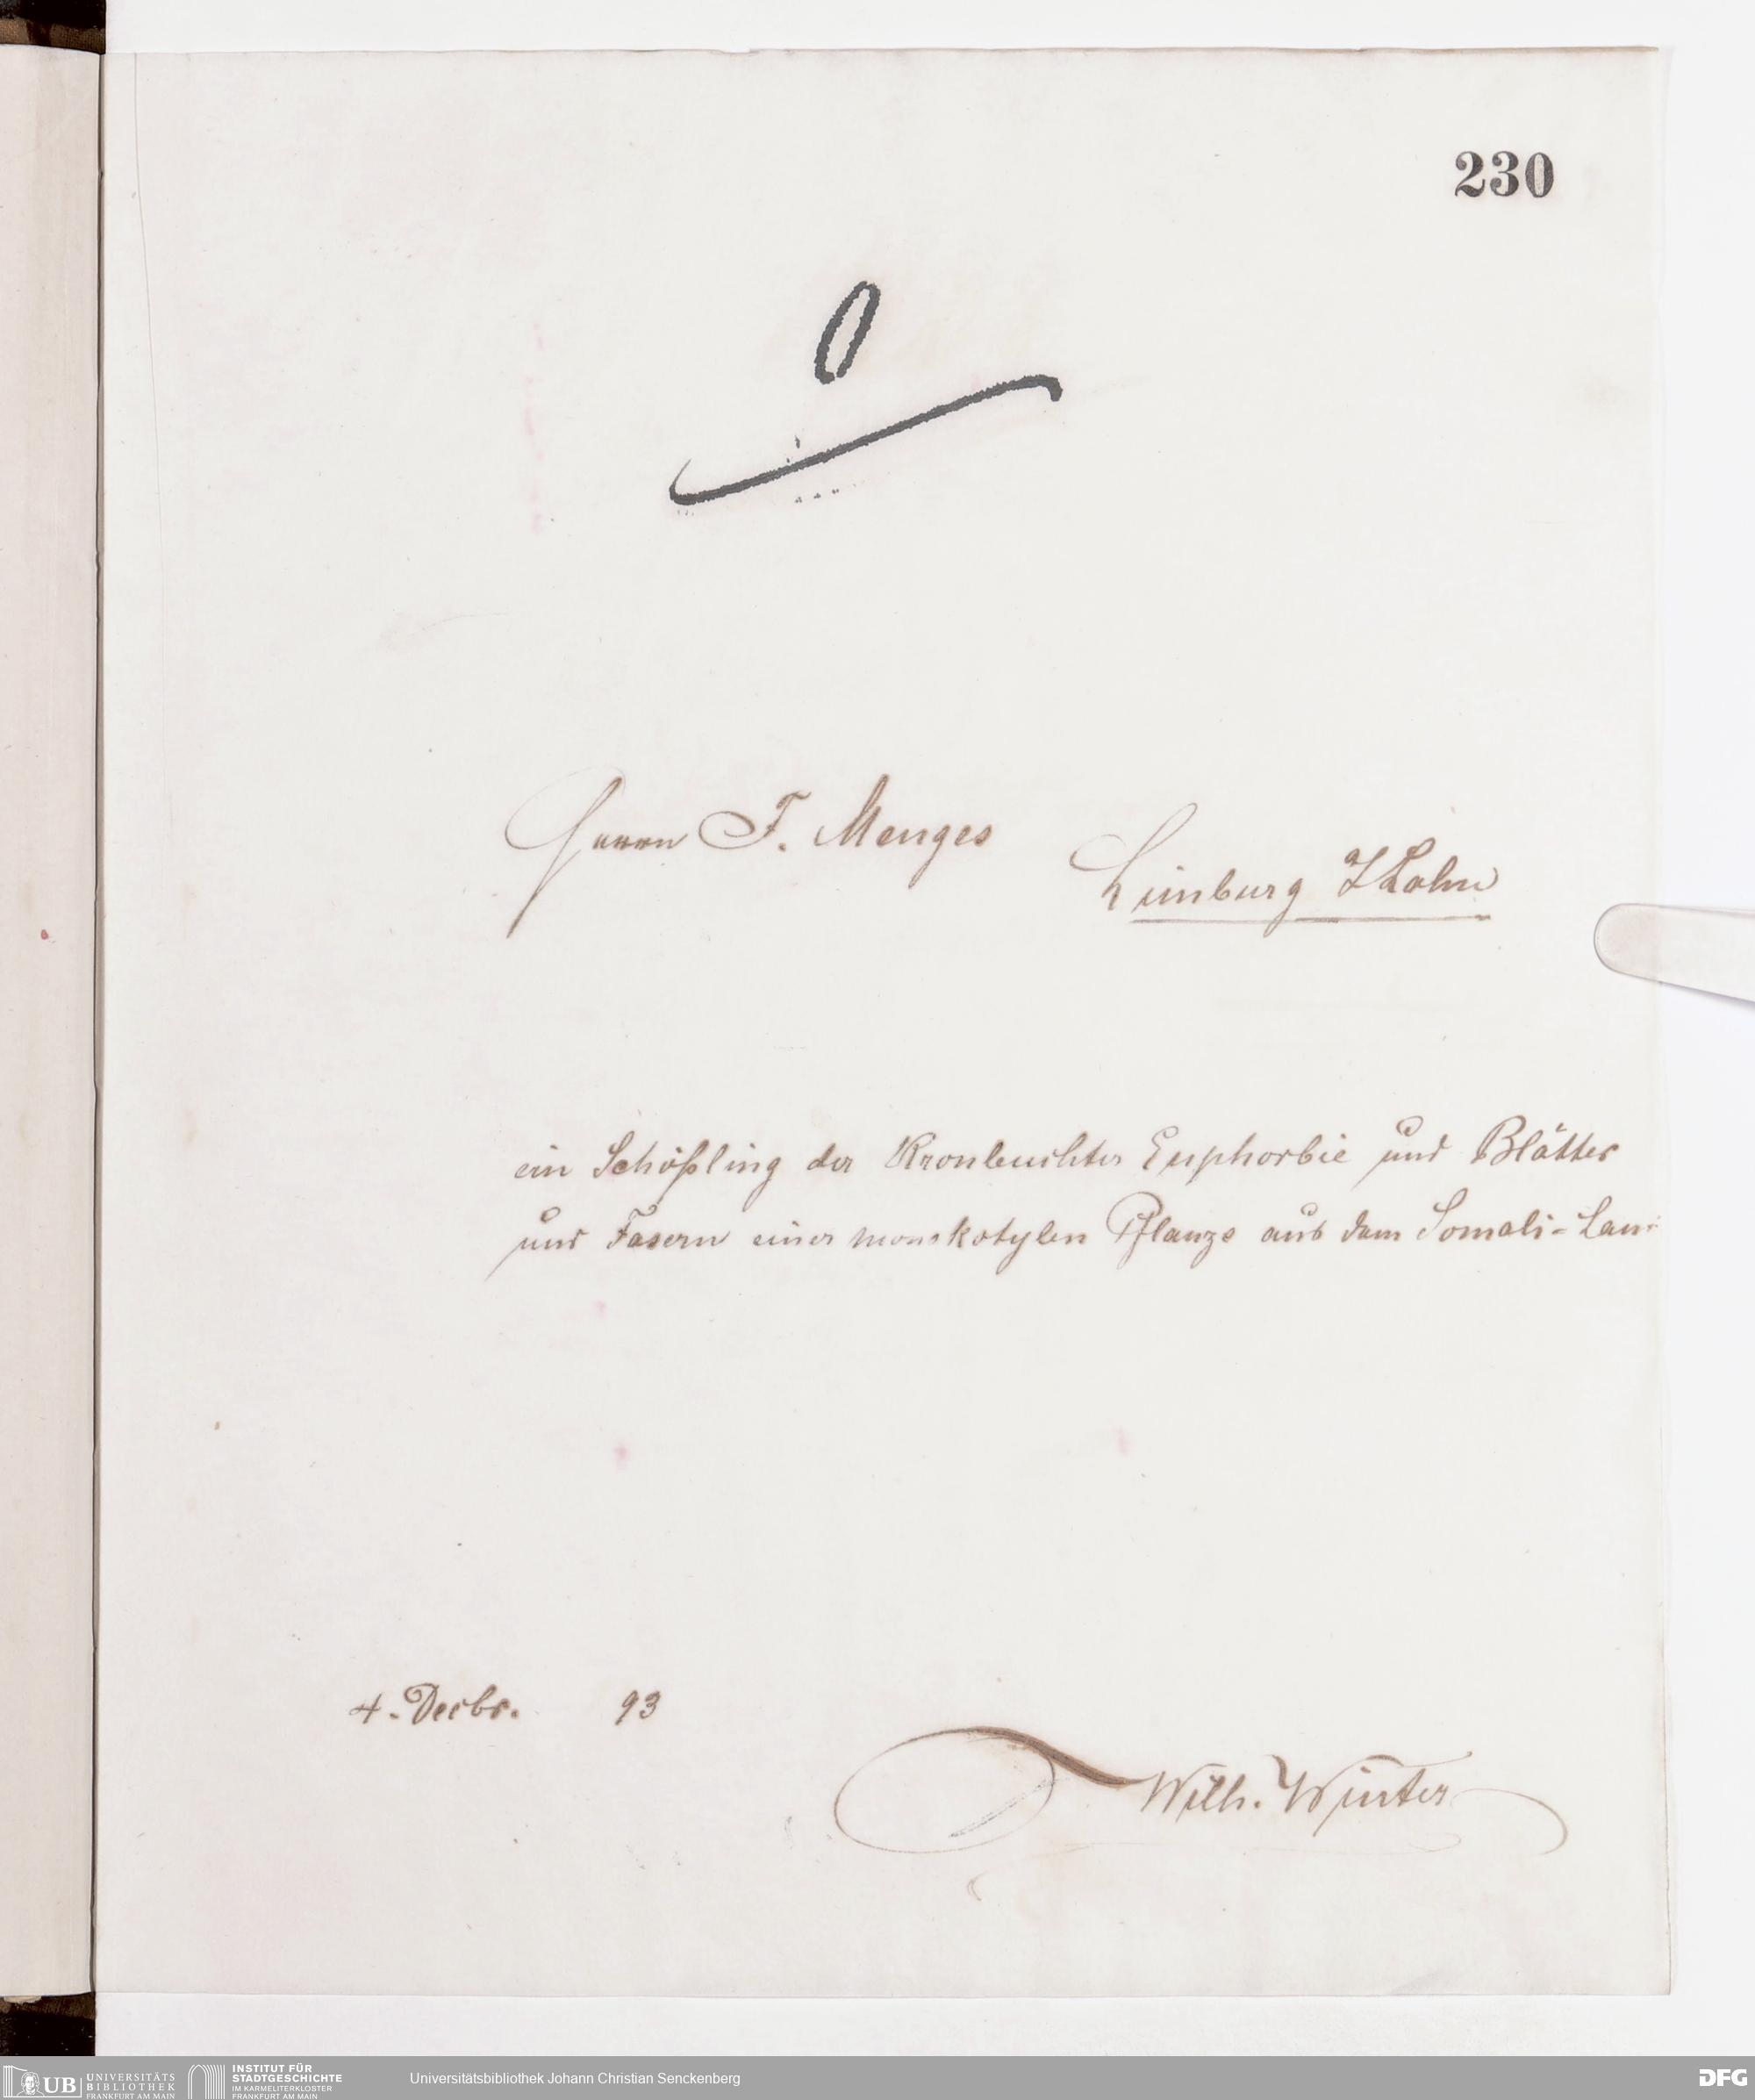 230
0
Herrn F. Menges
Limburg / Lahn
ein Schößling der Kronleuchter Euphorbie und Blätter
und Fasern einer monokotylen Pflanze aus dem Somali-Land
4. Decbr. 93
Wilh. Winter
UB UNIVERSITÄTS BIBLIOTHEK FRANKFURT AM MAIN
INSTITUT FÜR STADTGESCHICHTE IM KARMELITERKLOSTER FRANKFURT AM MAIN
Universitätsbibliothek Johann Christian Senckenberg
DFG